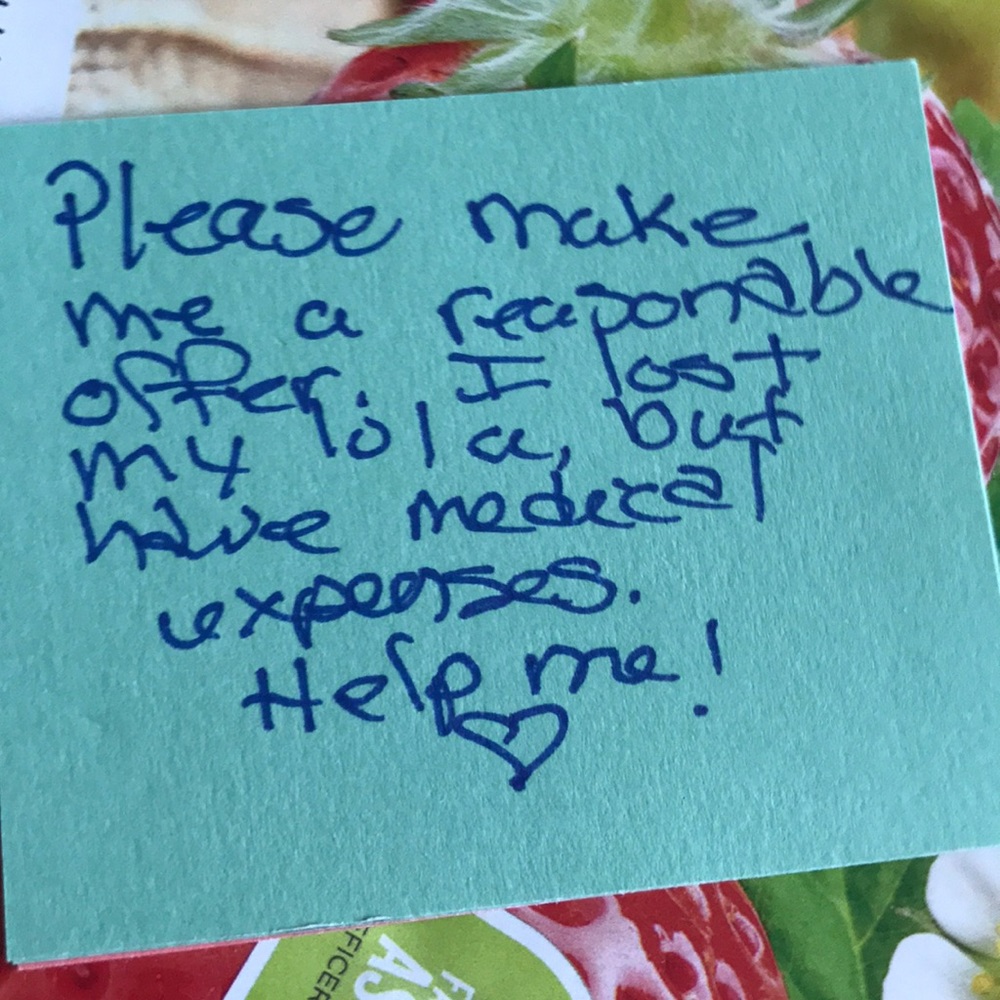 Please make
me a reasonable
offer. I lost
my lola, but
have medical
expenses.
Help me!